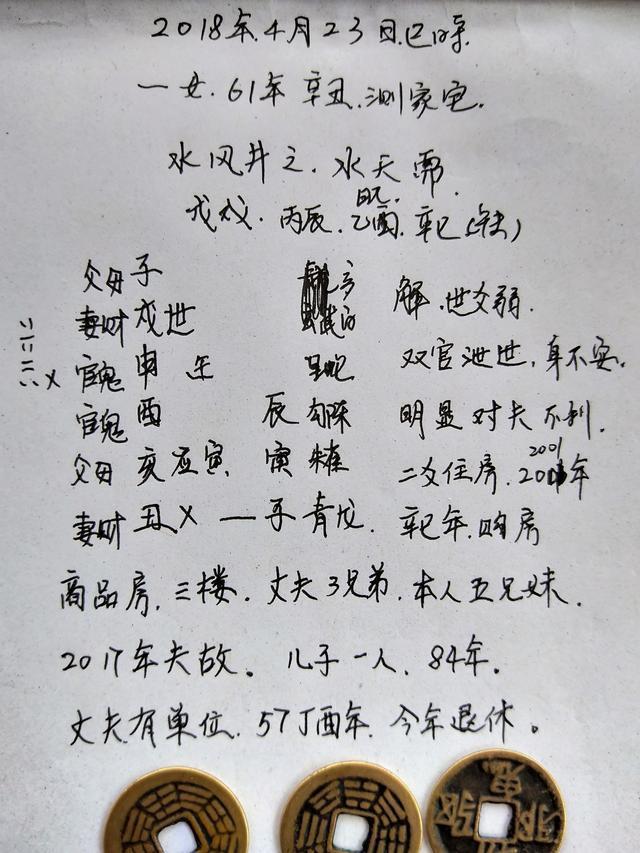 2018年.4月23日.巳时.
一女.61年辛丑.测家宅.
水风井之.水天需.
戊戌.丙辰.乙酉.辛巳
父母子
妻财戌世 解.世爻弱.
官鬼申 双官泄世.身不安.
官鬼酉 辰勾陈 明显对夫不利.
父母亥应寅 寅朱雀 二爻住房.2001年
妻财丑X 一子青龙.辛巳年.购房
商品房.三楼.丈夫3兄弟.本人五兄妹.
2017年夫故。儿子一人.84年.
丈夫有单位.57丁酉年.今年退休。